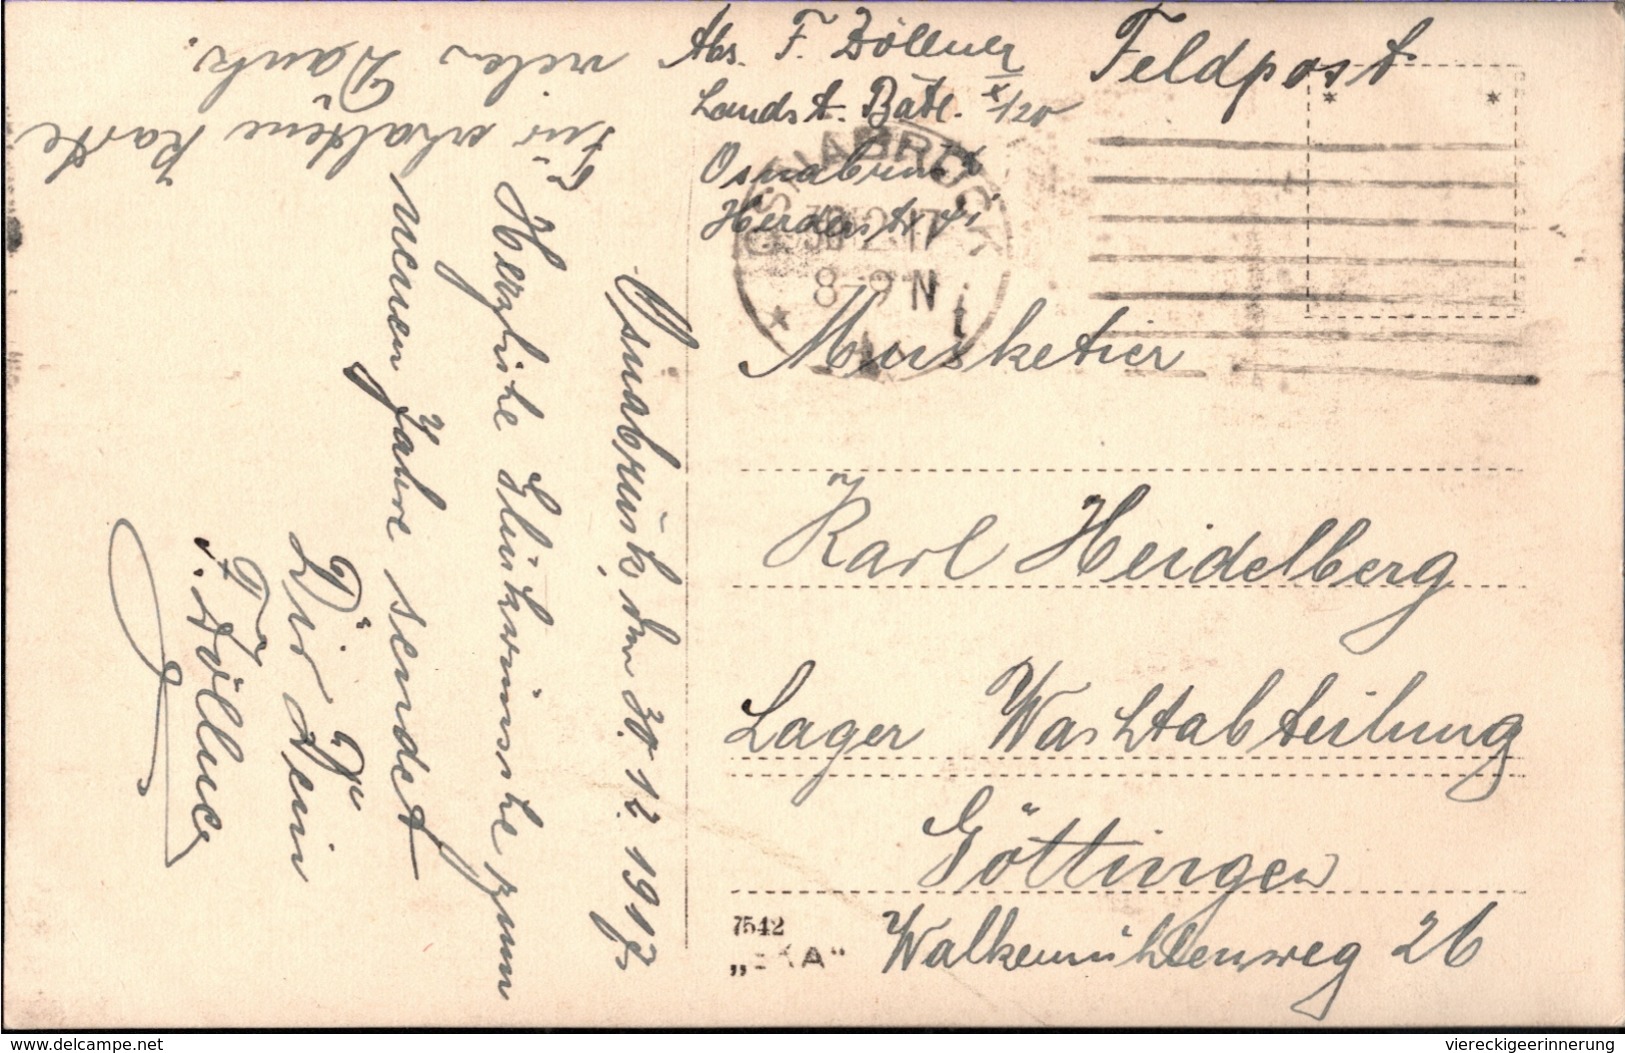 Abs. F. Zöllner
Landst. Batl. X/20
Osnabrück
Herderstr.
Feldpost
OSNABRÜCK
30.12.17
8-9 N
Musketier
Karl Heidelberg
Lager Wachtabteilung
Göttingen
Walkemühlenweg 26
7542
Osnabrück, den 30.12.1917.
Herzliche Glückwünsche zum
neuen Jahre sendet
Dir Dein
F. Zöllner
Für erhaltene Karte
vielen Dank.
delcampe.net
viereckigeerinnerung